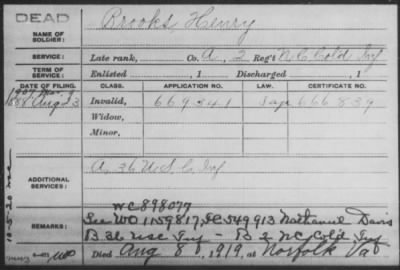 DEAD
Brooks, Henry
NAME OF SOLDIER:
SERVICE: Late rank, Co. A, 2 Reg't N.C. Cold Inf
TERM OF SERVICE: Enlisted , 1 Discharged , 1
DATE OF FILING. CLASS. APPLICATION NO. LAW. CERTIFICATE NO.
1888 Aug 23 Invalid, 669341 666839
Widow,
Minor,
A, 36 U.S.C. Inf
ADDITIONAL SERVICES:
WC898077
REMARKS: See WO 1159817, 549913 Nathaniel Davis
B. 36 USC Inf - B 2 NC Cold Inf
Died Aug 8, 1919, at Norfolk Va
10-5-20